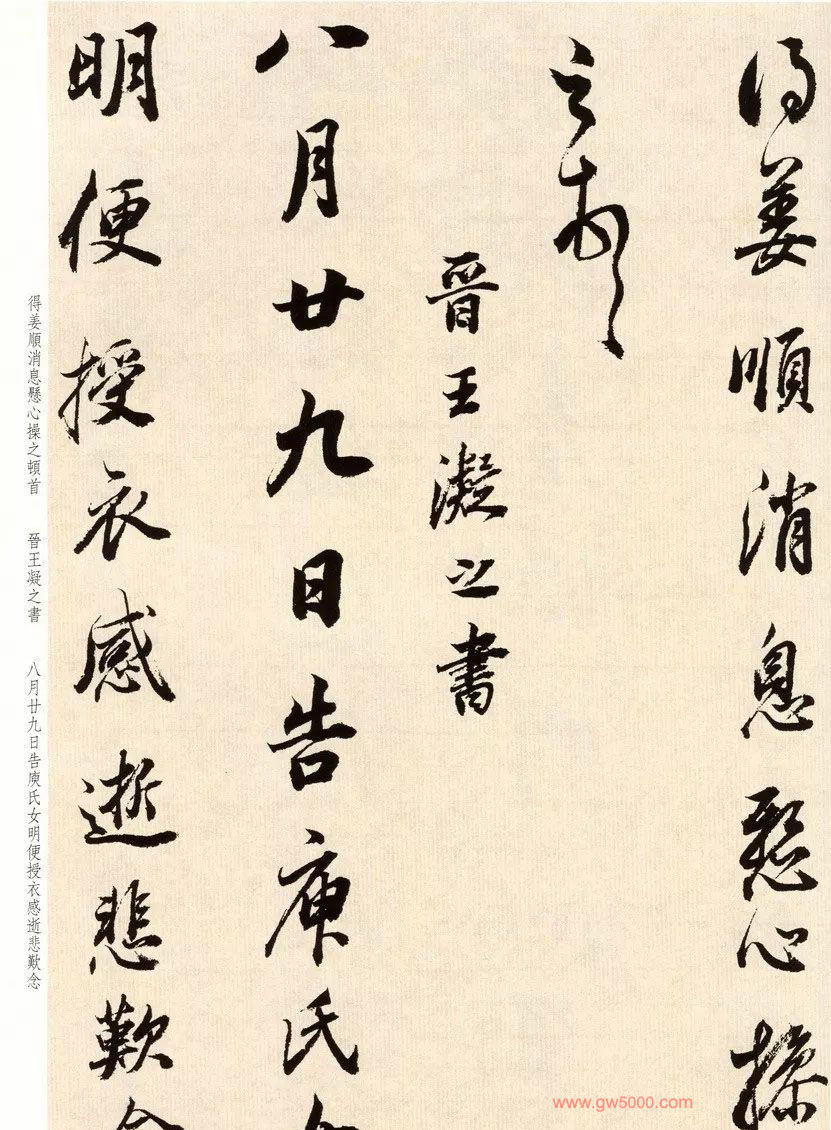 得姜順消息懸心操
之頓首
晉王凝之書
八月廿九日告庾氏女
明便授衣感逝悲歎念
得姜順消息懸心操之頓首 晉王凝之書 八月廿九日告庾氏女明便授衣感逝悲歎念
www.gw5000.com